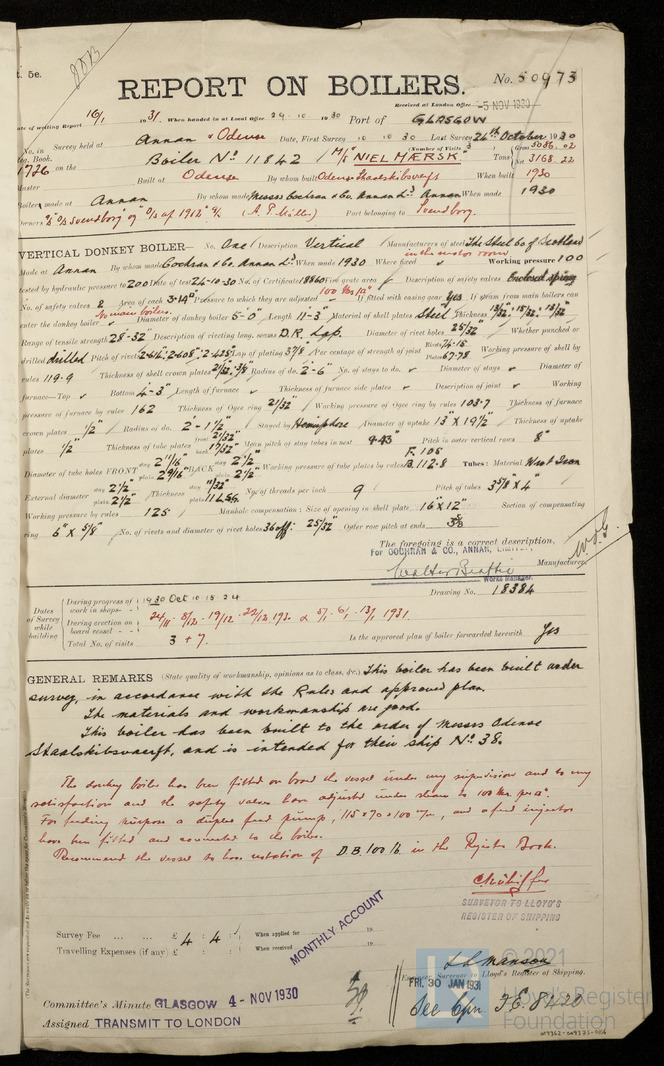 t. 5e.
REPORT ON BOILERS.
No. 50973
Received at London Office -5 NOV 1930
Date of writing Report 16/1 1931. When handed in at Local Office 29.10.1930 Port of GLASGOW
No. in Survey held at Annan & Odense Date, First Survey 10.10.30 Last Survey 24th October 1930
Reg. Book. (Number of Visits 3) Gross 5086.02
1726 on the Boiler No 11842 M/S "NIEL MÆRSK" Tons Net 3168.22
Master Built at Odense By whom built Odense Staalskibsvaerft When built 1930
Boilers made at Annan By whom made Messrs Cochran & Co. Annan Ld. Annan When made 1930
Owners A/S D/S Svendborg og D/S af 1912 A/S (A. P. Möller) Port belonging to Svendborg.
VERTICAL DONKEY BOILER— No. One Description Vertical Manufacturers of steel The Steel Co of Scotland
Made at Annan By whom made Cochran & Co. Annan Ld. When made 1930 Where fixed in the motor room Working pressure 100
tested by hydraulic pressure to 200 Date of test 24.10.30 No. of Certificate 18860 Fire grate area Description of safety valves Enclosed spring
No. of safety valves 2 Area of each 3.14" Pressure to which they are adjusted 100 lbs/□" If fitted with easing gear Yes If steam from main boilers can
enter the donkey boiler No main boilers. Diameter of donkey boiler 5-0" Length 11-3" Material of shell plates Steel Thickness 13/32" 15/32" 15/32"
Range of tensile strength 28-32 Description of riveting long. seams D.R. Lap. Diameter of rivet holes 25/32" Whether punched or
drilled drilled Pitch of rivets 2.64", 2.608", 2.425" Lap of plating 3 7/8" Per centage of strength of joint Rivets 74.15 Plates 67.78 Working pressure of shell by
rules 119.9 Thickness of shell crown plates 21/32", 5/8" Radius of do. 2-6" No. of stays to do. Diameter of stays Diameter of
furnace—Top Bottom 4-3" Length of furnace Thickness of furnace side plates Description of joint Working
pressure of furnace by rules 162 Thickness of Ogee ring 21/32" Working pressure of Ogee ring by rules 103.7 Thickness of furnace
crown plates 1/2" Radius of do. 2-1 1/2" Stayed by Hemisphere Diameter of uptake 13" X 19 1/2" Thickness of uptake
plates 1/2" Thickness of tube plates front 21/32" back 17/32" Mean pitch of stay tubes in nest 9.43" Pitch in outer vertical rows 8"
Diameter of tube holes FRONT stay 2 11/16" plain 2 9/16" BACK stay 2 1/2" plain 2 1/2" Working pressure of tube plates by rules F. 105 B. 112.8 Tubes: Material Wrot Iron
External diameter stay 2 1/2" plain 2 1/2" Thickness stay 11/32" plain 11 L.S.G. No. of threads per inch 9 Pitch of tubes 3 5/8" X 4"
Working pressure by rules 125 Manhole compensation: Size of opening in shell plate 16" X 12" Section of compensating
ring 6" X 5/8" No. of rivets and diameter of rivet holes 36 off: 25/32" Outer row pitch at ends 3 5/8
The foregoing is a correct description,
For COCHRAN & CO., ANNAN, LIMITED,
Walter Beattie Manufacturer.
Works Manager.
Drawing No. 18384
Dates of Survey while building
During progress of work in shops - - 1930 Oct 10 15 24
During erection on board vessel - - 24/11 - 8/12 - 19/12 - 22/12 1930 & 5/1 - 6/1 - 13/1 1931.
Total No. of visits 3 + 7.
Is the approved plan of boiler forwarded herewith Yes
GENERAL REMARKS (State quality of workmanship, opinions as to class, &c.) This boiler has been built under
survey, in accordance with the Rules and approved plan.
The materials and workmanship are good.
This boiler has been built to the order of Messrs Odense
Staalskibsvaerft, and is intended for their ship No 38.
The donkey boiler has been fitted on board the vessel under my supervision and to my
satisfaction and the safety valves have adjusted under steam to 100 lbs. per □".
For feeding purpose a duplex feed pump, 115 x 70 x 100 m/m, and a feed injector
have been fitted and connected to the boiler.
Recommend the vessel to have notation of D.B. 100 lb. in the Register Book.
SURVEYOR TO LLOYD'S
REGISTER OF SHIPPING
Survey Fee ... ... £ 4 : 4 : When applied for 19
Travelling Expenses (if any) £ : : When received 19
MONTHLY ACCOUNT
L. L. Manson
Engineer Surveyor to Lloyd's Register of Shipping.
FRI. 30 JAN 1931
Committee's Minute GLASGOW 4 - NOV 1930
Assigned TRANSMIT TO LONDON
See Cpn. J.E. 8420
© 2021
Lloyd's Register
Foundation